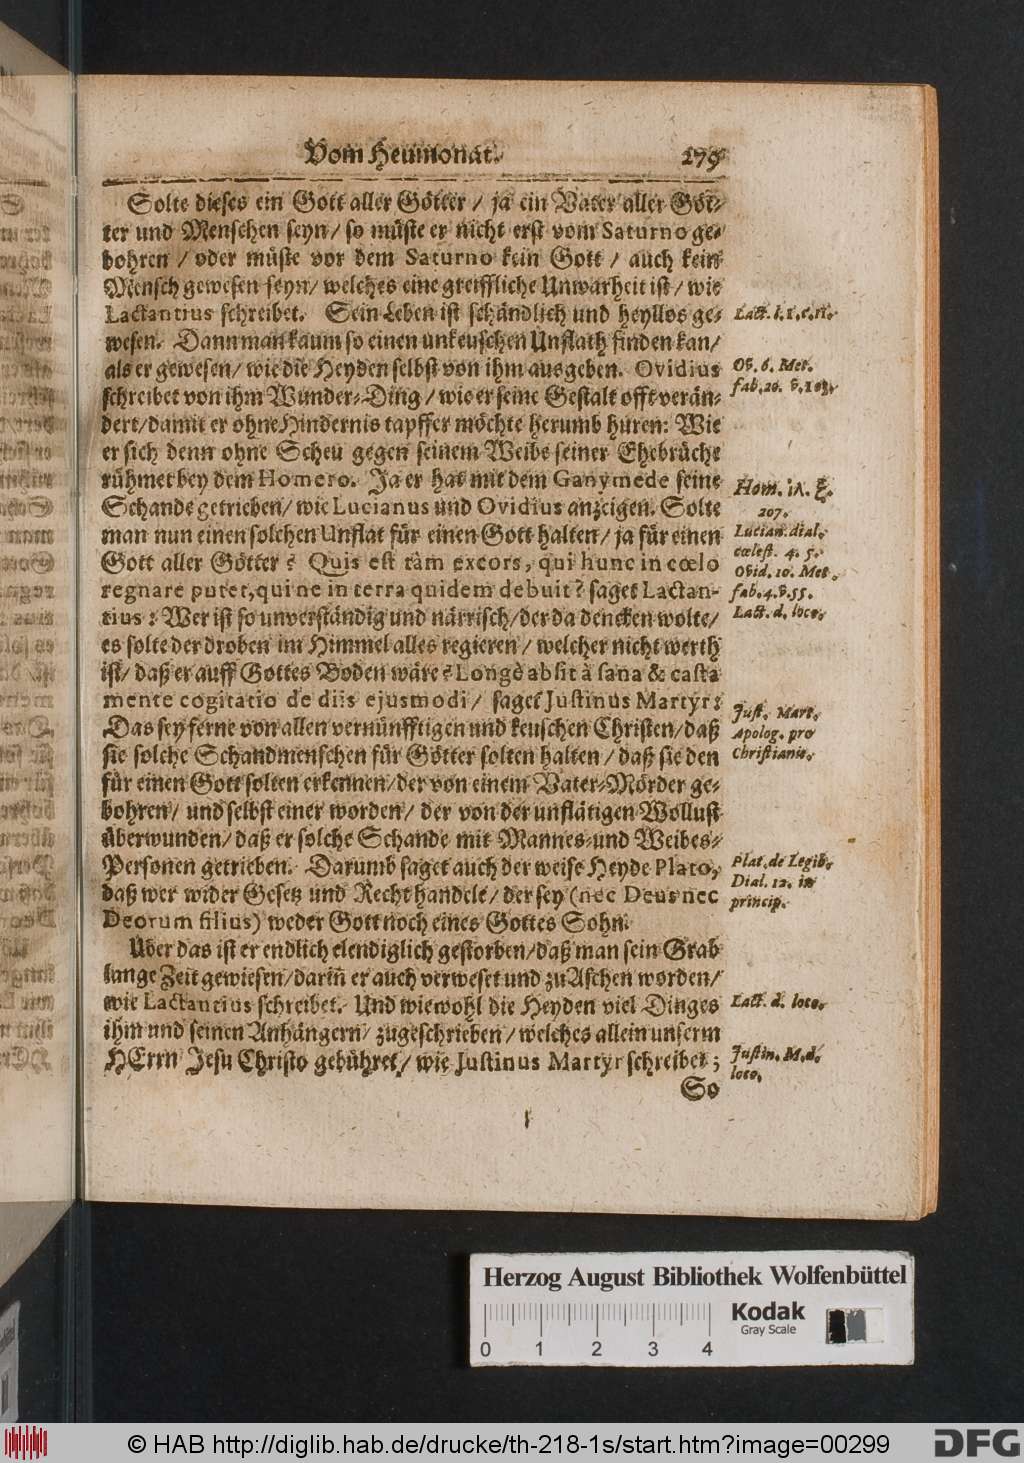 Vom Heumonat. 279
Solte dieses ein Gott aller Götter / ja ein Vater aller Göt-
ter und Menschen seyn / so müste er nicht erst vom Saturno ge-
bohren / oder müste vor dem Saturno kein Gott / auch kein
Mensch gewesen seyn / welches eine greiffliche Unwarheit ist / wie
Lactantius schreibet. Sein Leben ist schändlich und heyllos ge-
wesen. Dann man kaum so einen unkeuschen Unflath finden kan /
als er gewesen / wie die Heyden selbst von ihm ausgeben. Ovidius
schreibet von ihm Wunder-Ding / wie er seine Gestalt offt verän-
dert / damit er ohne Hindernis tapffer möchte herumb huren: Wie
er sich denn ohne Scheu gegen seinem Weibe seiner Ehebrüche
rühmet bey dem Homero. Ja er hat mit dem Ganymede seine
Schande getrieben / wie Lucianus und Ovidius anzeigen. Solte
man nun einen solchen Unflat für einen Gott halten / ja für einen
Gott aller Götter? Quis est tàm excors, qui hunc in cœlo
regnare putet, qui ne in terra quidem debuit? saget Lactan-
tius: Wer ist so unverständig und närrisch / der da dencken wolte /
es solte der droben im Himmel alles regieren / welcher nicht werth
ist / daß er auff Gottes Boden wäre? Longè absit à sana & casta
mente cogitatio de diis ejusmodi / saget Justinus Martyr:
Das sey ferne von allen vernünfftigen und keuschen Christen / daß
sie solche Schandmenschen für Götter solten halten / daß sie den
für einen Gott solten erkennen / der von einem Vater-Mörder ge-
bohren / und selbst einer worden / der von der unflätigen Wollust
überwunden / daß er solche Schande mit Mannes- und Weibes-
Personen getrieben. Darumb saget auch der weise Heyde Plato,
daß wer wider Gesetz und Recht handele / der sey (nec Deus nec
Deorum filius) weder Gott noch eines Gottes Sohn.
Uber das ist er endlich elendiglich gestorben / daß man sein Grab
lange Zeit gewiesen / dariñ er auch verweset und zu Aschen worden /
wie Lactantius schreibet. Und wiewohl die Heyden viel Dinges
ihm und seinen Anhängern / zugeschrieben / welches allein unserm
HErrn Jesu Christo gebühret / wie Justinus Martyr schreibet;
So
Lact. l. 1. c. 11.
Ov. 6. Met.
fab. 20. v. 103.
Hom. Il. ξ.
207.
Lucian. dial.
cœlest. 4. 5.
Ovid. 10. Met.
fab. 4. v. 55.
Lact. d. loco.
Just. Mart.
Apolog. pro
Christianis.
Plat. de Legib.
Dial. 12. in
princip.
Lact. d. loco.
Justin. M. d.
loco.
Herzog August Bibliothek Wolfenbüttel
0 1 2 3 4
Kodak
Gray Scale
© HAB http://diglib.hab.de/drucke/th-218-1s/start.htm?image=00299
DFG